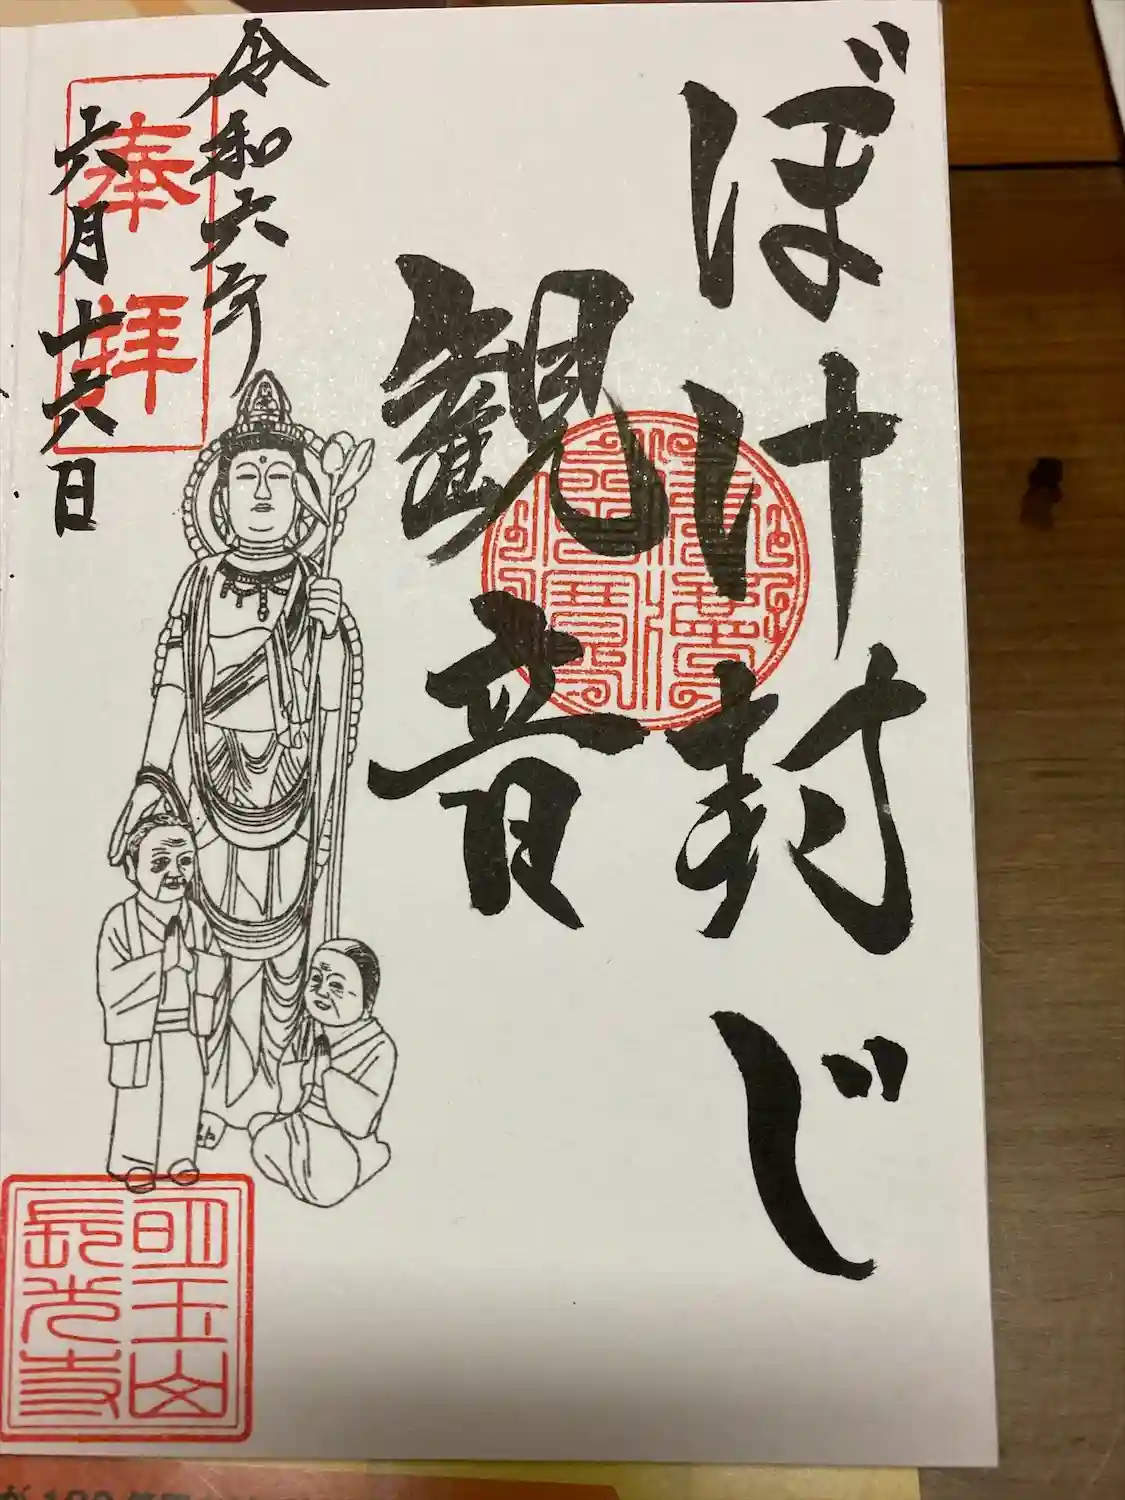 ぼけ封じ
観音
令和六年
奉拝
六月十六日
明王山
長光寺